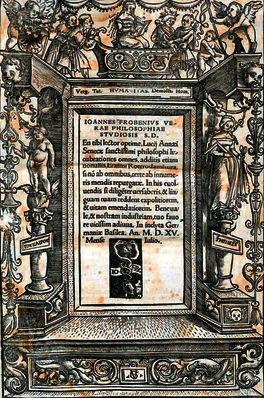 Verg. Tul. HVMANITAS. Demost. Hom.
IOANNES FROBENIVS VE
RAE PHILOSOPHIAE
STVDIOSIS S.D.
En tibi lector optime, Lucij Annæi
Senecæ sanctissimi philosophi lu
cubrationes omnes, additis etiam
nonnullis, Erasmi Roterodami cura
si nō ab omnibus, certe ab innume
ris mendis repurgatæ. In his euol-
uendis si diligēter uersaberis, & lin
guam tuam reddent expolitiorem,
& uitam emendatiorem. Bene ua-
le, & nostram industriam, tuo fauo
re uicissim adiuua. In inclyta Ger
maniæ Basilea. An. M. D. XV.
Mense Iulio.